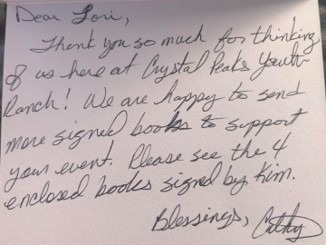 Dear Lori,
Thank you so much for thinking
of us here at Crystal Peaks Youth
Ranch! We are happy to send
more signed books to support
your event. Please see the 4
enclosed books signed by Kim.
Blessings, Cathy